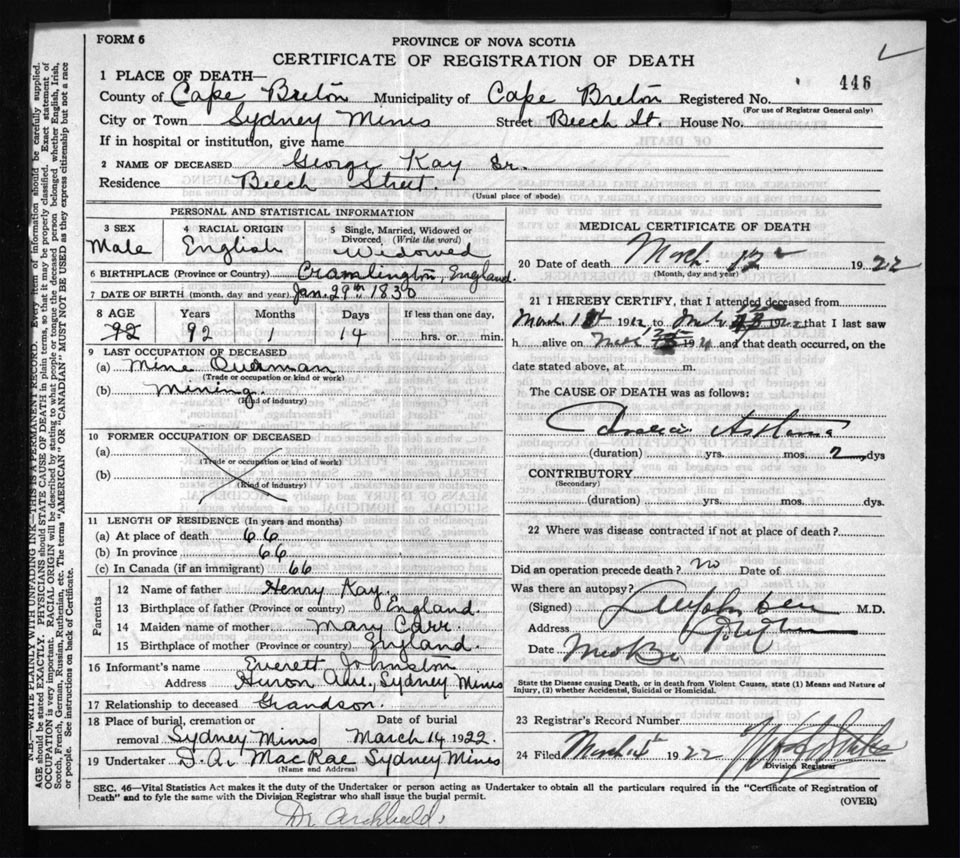 FORM 6
PROVINCE OF NOVA SCOTIA
CERTIFICATE OF REGISTRATION OF DEATH
446
1 PLACE OF DEATH—
County of Cape Breton Municipality of Cape Breton Registered No.
(For use of Registrar General only)
City or Town Sydney Mines Street Beech St. House No.
If in hospital or institution, give name
2 NAME OF DECEASED George Kay Sr.
Residence Beech Street.
(Usual place of abode)
PERSONAL AND STATISTICAL INFORMATION
3 SEX 4 RACIAL ORIGIN 5 Single, Married, Widowed or Divorced (Write the word)
Male English Widowed
6 BIRTHPLACE (Province or Country) Cramlington, England.
7 DATE OF BIRTH (month, day and year) Jan. 29th 1830
8 AGE Years Months Days If less than one day,
92 92 1 14 hrs. or min.
9 LAST OCCUPATION OF DECEASED
(a) Mine Overman
(Trade or occupation or kind or work)
(b) Mining.
(Kind of industry)
10 FORMER OCCUPATION OF DECEASED
(a)
(Trade or occupation or kind of work)
(b)
(Kind of industry)
11 LENGTH OF RESIDENCE (In years and months)
(a) At place of death 66
(b) In province 66
(c) In Canada (if an immigrant) 66
Parents
12 Name of father Henry Kay.
13 Birthplace of father (Province or country) England.
14 Maiden name of mother Mary Carr.
15 Birthplace of mother (Province or country) England.
16 Informant's name Everett Johnston
Address Huron Ave., Sydney Mines
17 Relationship to deceased Grandson.
18 Place of burial, cremation or removal Sydney Mines Date of burial March 14 1922.
19 Undertaker D. A. MacRae Sydney Mines
(Name and Address)
MEDICAL CERTIFICATE OF DEATH
20 Date of death March 1922
(Month, day and year)
21 I HEREBY CERTIFY, that I attended deceased from
March 1st 192 to 192 that I last saw
h alive on 192 and that death occurred, on the
date stated above, at m.
The CAUSE OF DEATH was as follows:
Cardiac Asthma
(duration) yrs. mos. 2 dys
CONTRIBUTORY
(Secondary)
(duration) yrs. mos. dys.
22 Where was disease contracted if not at place of death?
Did an operation precede death? no Date of
Was there an autopsy?
(Signed) M.D.
Address
Date
State the Disease causing Death, or in death from Violent Causes, state (1) Means and Nature of
Injury, (2) whether Accidental, Suicidal or Homicidal.
23 Registrar's Record Number
24 Filed March 1922
Division Registrar
SEC. 46—Vital Statistics Act makes it the duty of the Undertaker or person acting as Undertaker to obtain all the particulars required in the "Certificate of Registration of
Death" and to fyle the same with the Division Registrar who shall issue the burial permit.
(OVER)
Dr Archibald
N.B.—WRITE PLAINLY WITH UNFADING INK—THIS IS A PERMANENT RECORD. Every item of information should be carefully supplied.
AGE should be stated EXACTLY. PHYSICIANS should STATE CAUSE OF DEATH in plain terms, so that it may be properly classified. Exact statement of
OCCUPATION is very important. RACIAL ORIGIN will be described by stating to what people or tongue the deceased person belonged whether English, Irish,
Scotch, French, German, Russian, Ruthenian, etc. The terms "AMERICAN" OR "CANADIAN" MUST NOT BE USED as they express citizenship but not a race
or people. See instructions on back of Certificate.